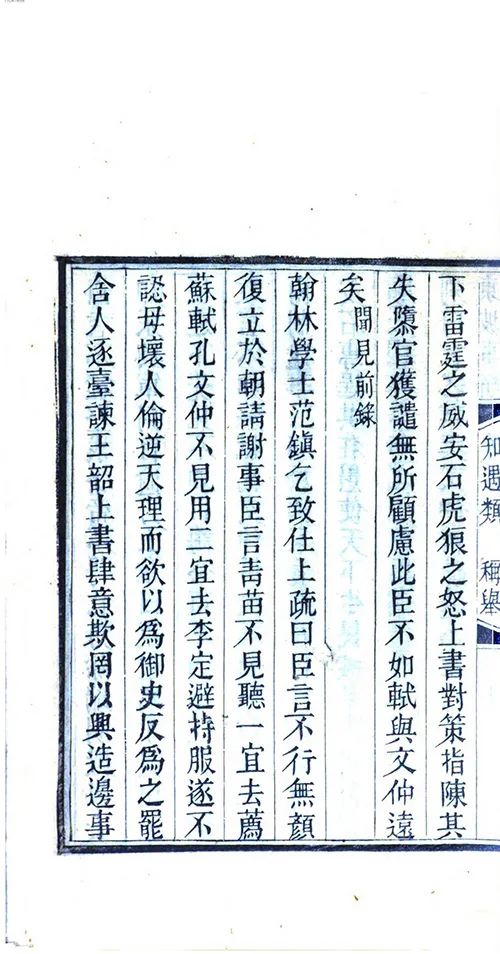 知遇類　稱舉
下雷霆之威安石虎狼之怒上書對策指陳其
失隳官獲譴無所顧慮此臣不如軾與文仲遠
矣聞見前錄
翰林學士范鎮乞致仕上疏曰臣言不行無顏
復立於朝請謝事臣言靑苗不見聽一宜去薦
蘇軾孔文仲不見用二宜去李定避持服遂不
認母壞人倫逆天理而欲以爲御史反爲之罷
舍人逐臺諫王韶上書肆意欺罔以興造邊事